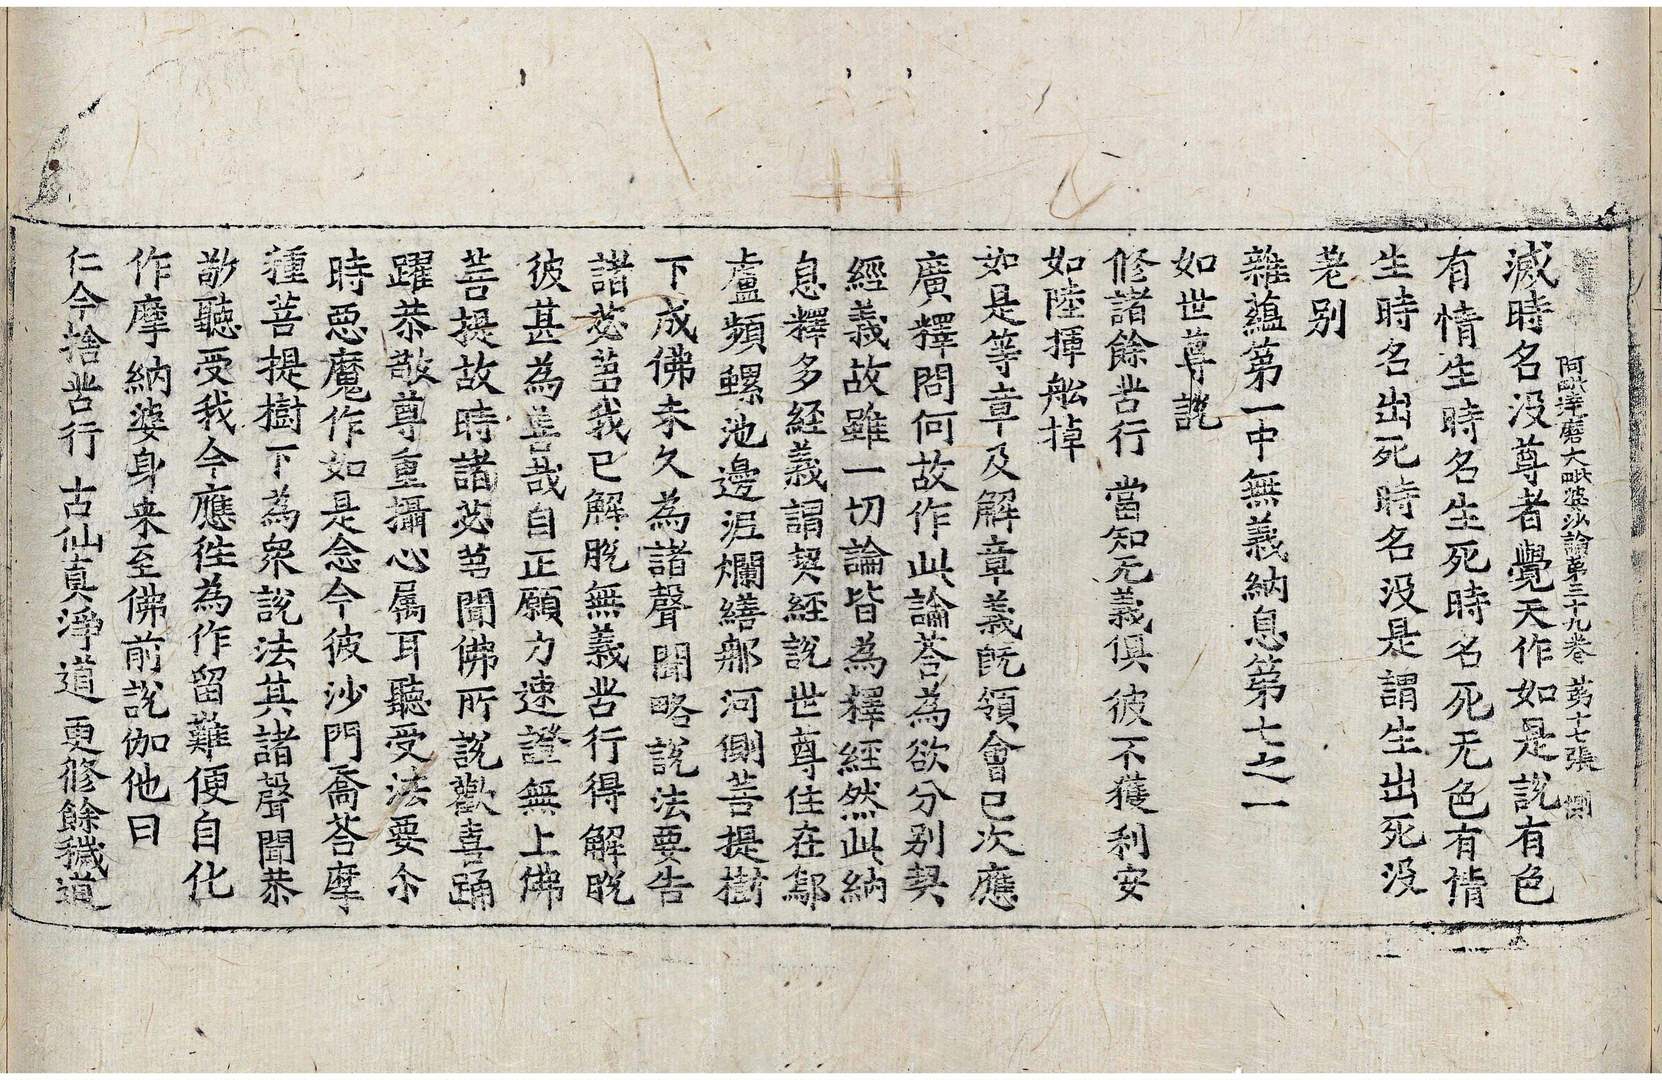 阿毗達磨大毗婆沙論第三十九卷 第十七張 惻
滅時名没尊者覺天作如是說有色
有情生時名生死時名死无色有情
生時名出死時名没是謂生出死没
差别
雜蘊第一中無義納息第七之一
如世尊說
修諸餘苦行 當知无義俱 彼不獲利安
如陸揮舩掉
如是等章及解章義旣領會已次應
廣釋問何故作此論荅為欲分别契
經義故雖一切論皆為釋経然此納
息釋多経義謂契経說世尊住在鄔
盧頻螺池邊泥爛繕那河側菩提樹
下成佛未久為諸聲聞略說法要告
諸苾芻我已解脫無義苦行得解脫
彼甚為善哉自正願力速證無上佛
菩提故時諸苾芻聞佛所說歡喜踊
躍恭敬尊重攝心属耳聽受法要尒
時惡魔作如是念今彼沙門喬荅摩
種菩提樹下為衆說法其諸聲聞恭
敬聽受我今應徃為作留難便自化
作摩納婆身来至佛前說伽他曰
仁今捨苦行 古仙真淨道 更修餘穢道